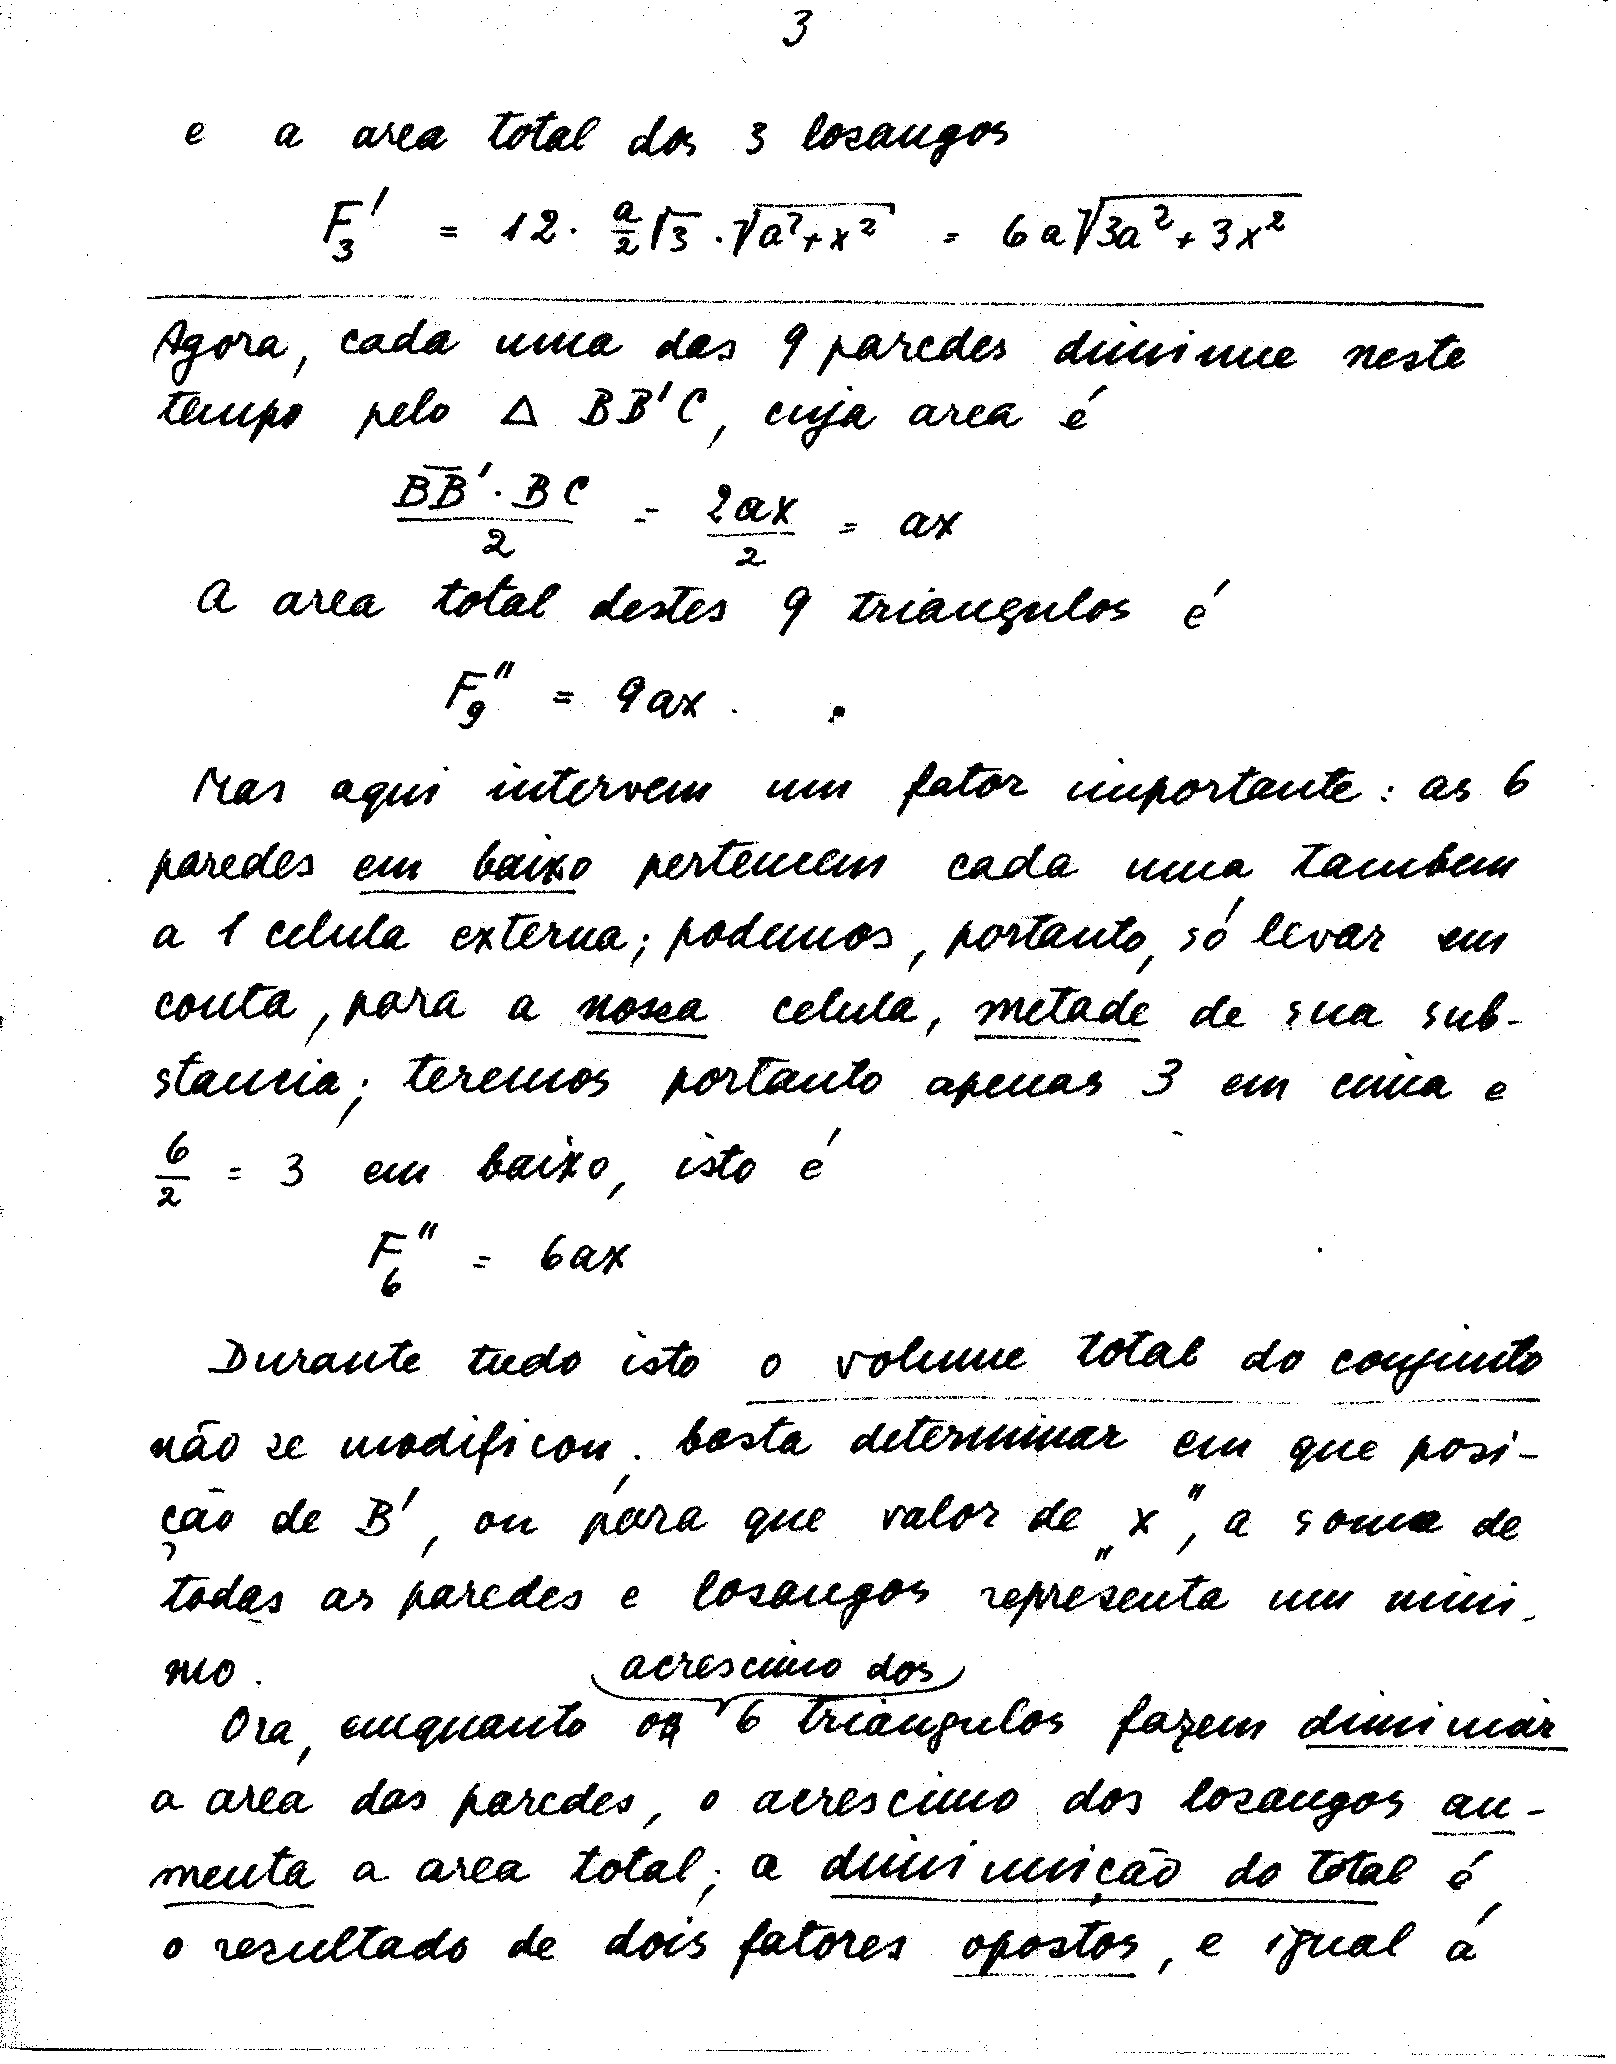 3
e a area total dos 3 losangos
F₃' = 12 · a/2 √3 · √a²+x² = 6a√3a²+3x²
Agora, cada uma das 9 paredes diminue neste
tempo pelo △ BB'C, cuja area é
BB'·BC/2 = 2ax/2 = ax
A area total destes 9 triangulos é
F₉" = 9ax.
Mas aqui intervem um fator importante: as 6
paredes em baixo pertencem cada uma tambem
a 1 celula externa; podemos, portanto, só levar em
conta, para a nossa celula, metade de sua sub-
stancia; teremos portanto apenas 3 em cima e
6/2 = 3 em baixo, isto é
F₆" = 6ax
Durante tudo isto o volume total do conjunto
não se modificou; basta determinar em que posi-
ção de B', ou para que valor de „x", a soma de
todas as paredes e losangos representa um mini-
mo.
acrescimo dos
Ora, emquanto os 6 triangulos fazem diminuir
a area das paredes, o acrescimo dos losangos au-
menta a area total; a diminuição do total é
o resultado de dois fatores opostos, e igual á